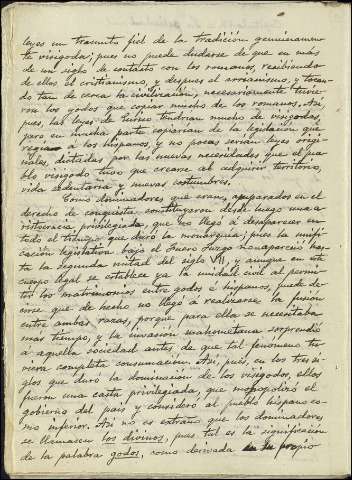 leyes un trasunto fiel de la tradición genuinamen-
te visigoda; pues no puede dudarse de que en más
de un siglo de contacto con los romanos, recibiendo
de ellos el cristianismo, y despues el arrianismo, y tocan-
do tan de cerca la civilización, necesariamente tuvie-
ron los godos que copiar mucho de los romanos. Así,
pues, las leyes de Eurico tendrían mucho de visigodas,
pero en mucha parte copiarían de la legislación que
regía a los hispanos, y no pocas serían leyes origi-
nales, dictadas por las nuevas necesidades que el pue-
blo visigodo tuvo que crearse al adquirir territorio,
vida sedentaria y nuevas costumbres.
Como dominadores que eran, amparados en el
derecho de conquista constituyeron desde luego una a-
ristocracia privilegiada, que no llegó a desaparecer en
todo el tiempo que duró la monarquía; pues la unifi-
cación legislativa bajo el Fuero Juzgo no apareció has-
ta la segunda mitad del siglo VII, y aunque en este
cuerpo legal se establece ya la unidad civil al permi-
tir los matrimonios entre godos é hispanos, puede de-
cirse que de hecho no llegó á realizarse la fusión
entre ambas razas, porque para ello se necesitaba
mas tiempo, y la invasión mahometana sorprendió
a aquella sociedad antes de que tal fenómeno tu-
viera completa consumación. Así, pues, en los tres si-
glos que duró la dominación de los visigodos, ellos
fueron una casta privilegiada, que monopolizó el
gobierno del pais y consideró al pueblo hispano co-
mo inferior. Así no es extraño que los dominadores
se llamasen los divinos, pues tal es la significación
de la palabra godos, como derivada en su propio